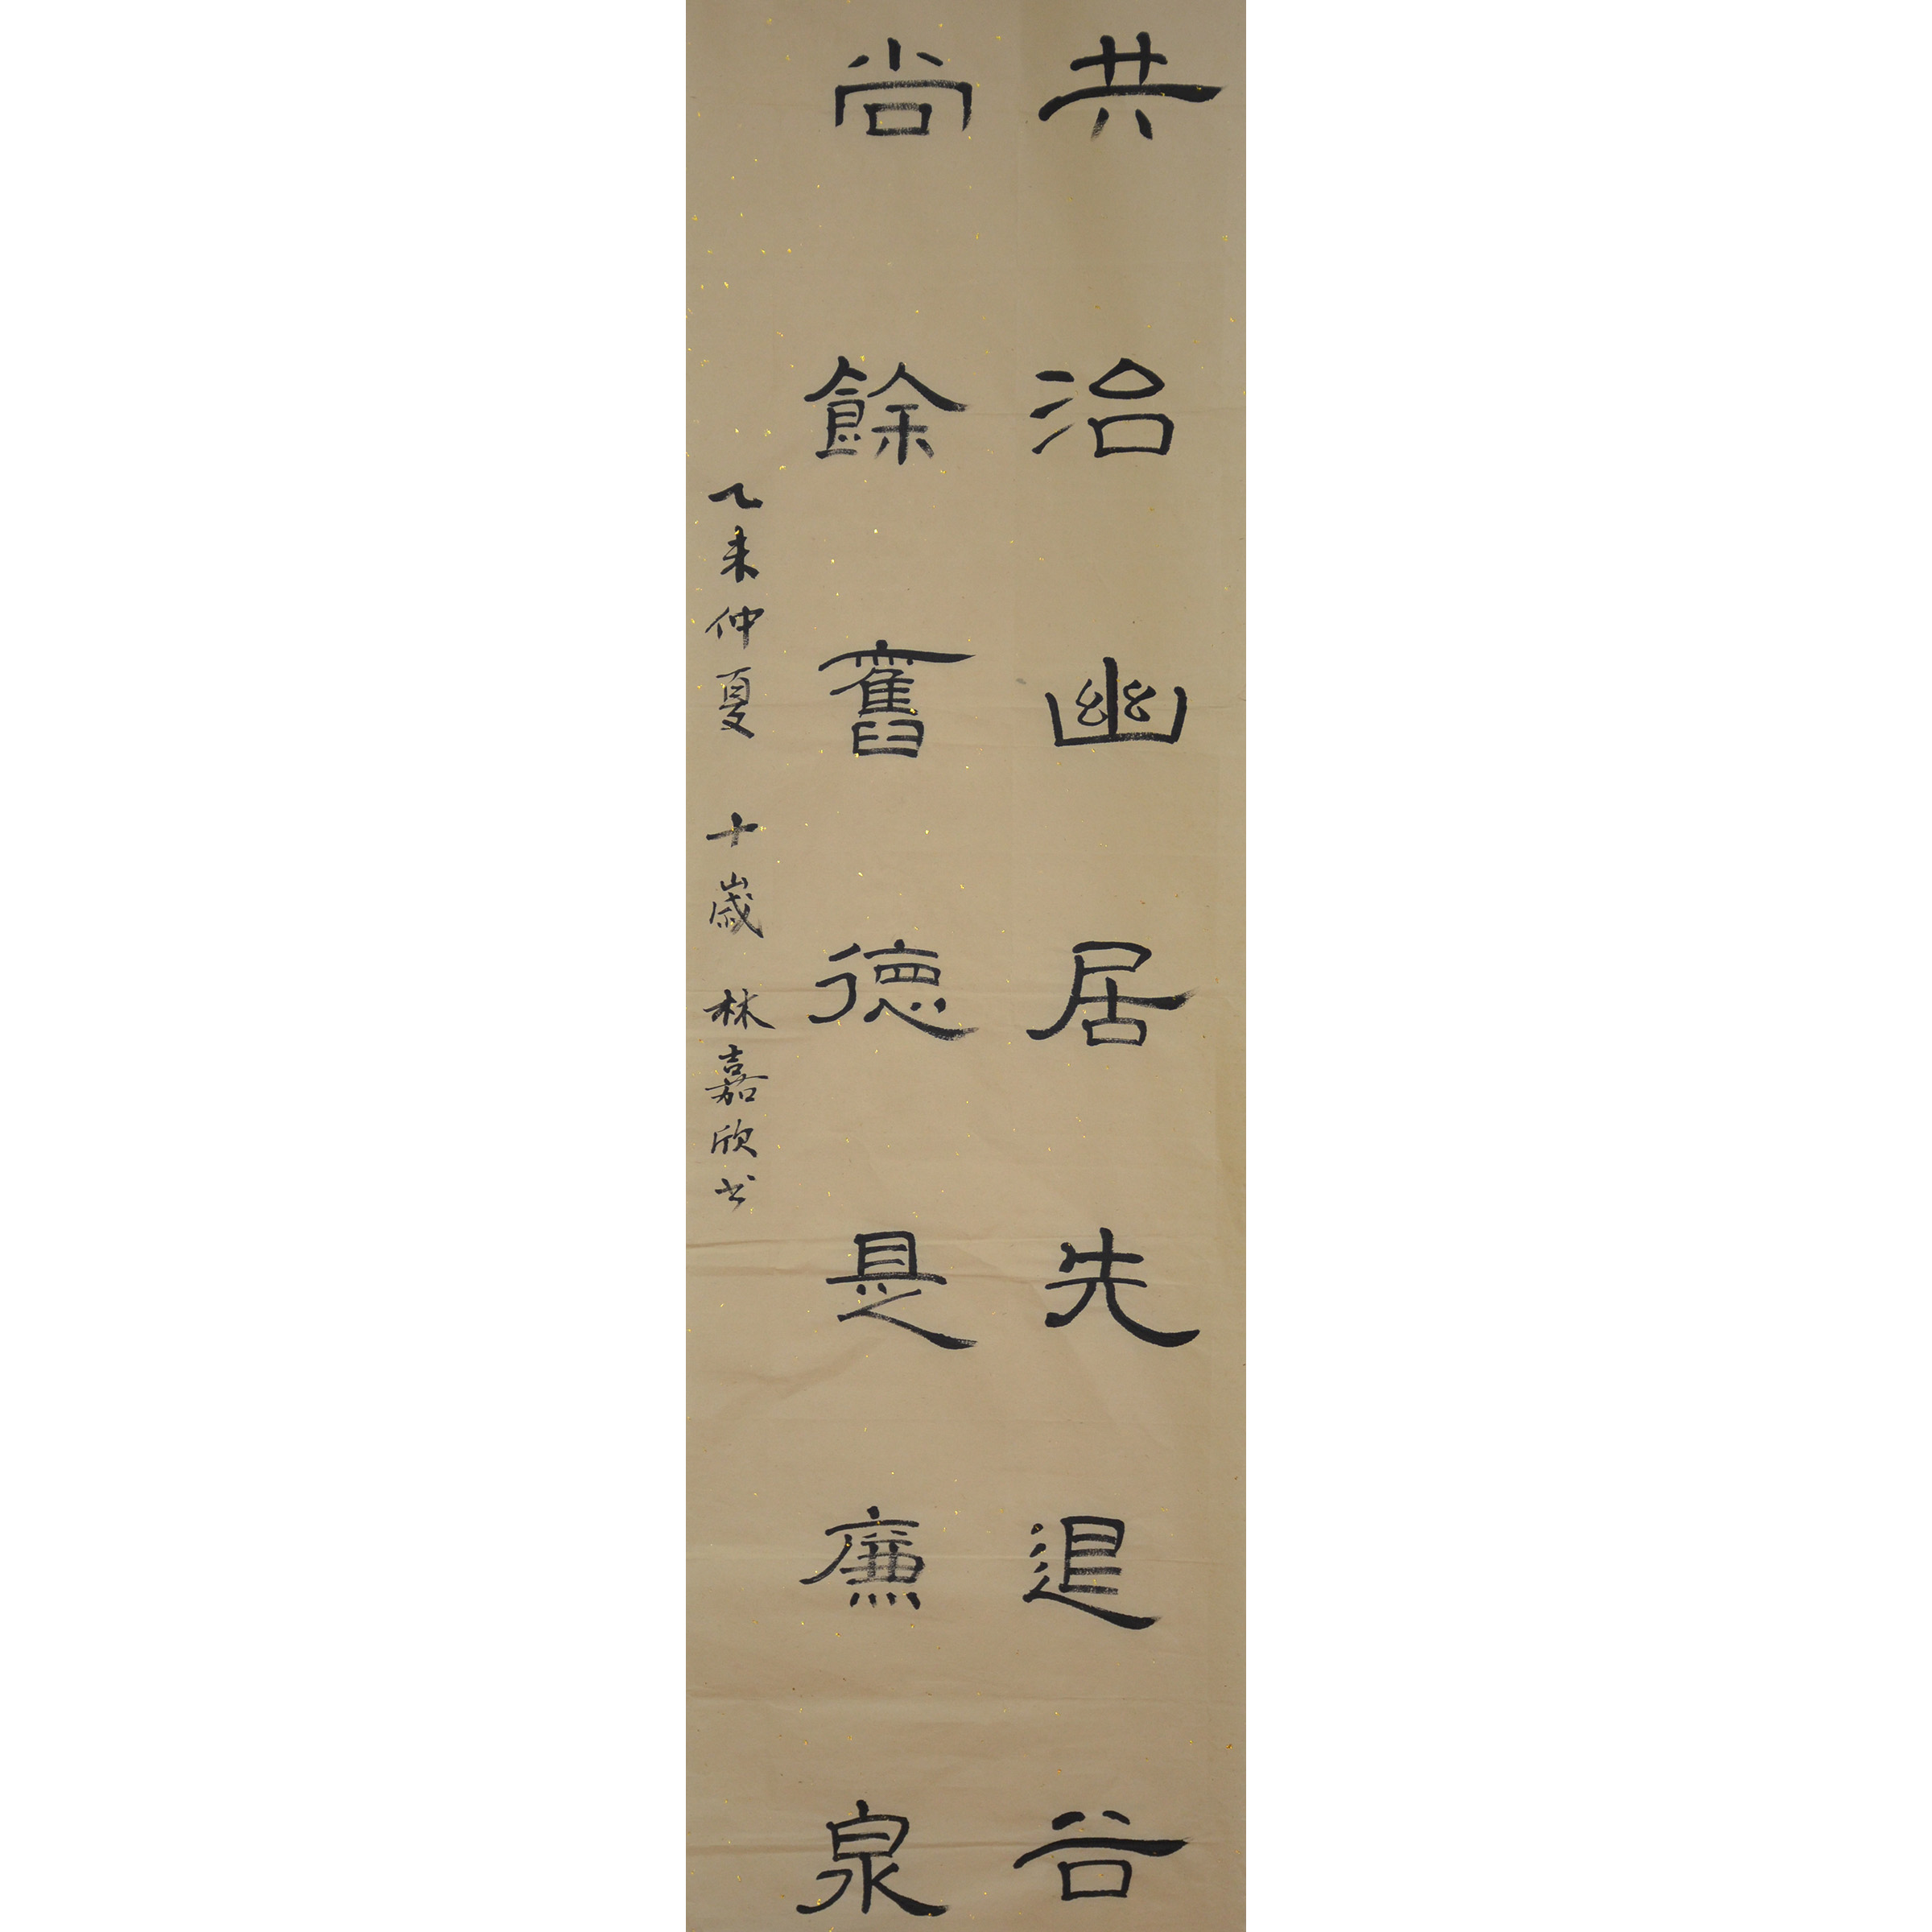 共治幽居先退谷
尚餘舊德是廉泉
乙未仲夏 十歲 林嘉欣书